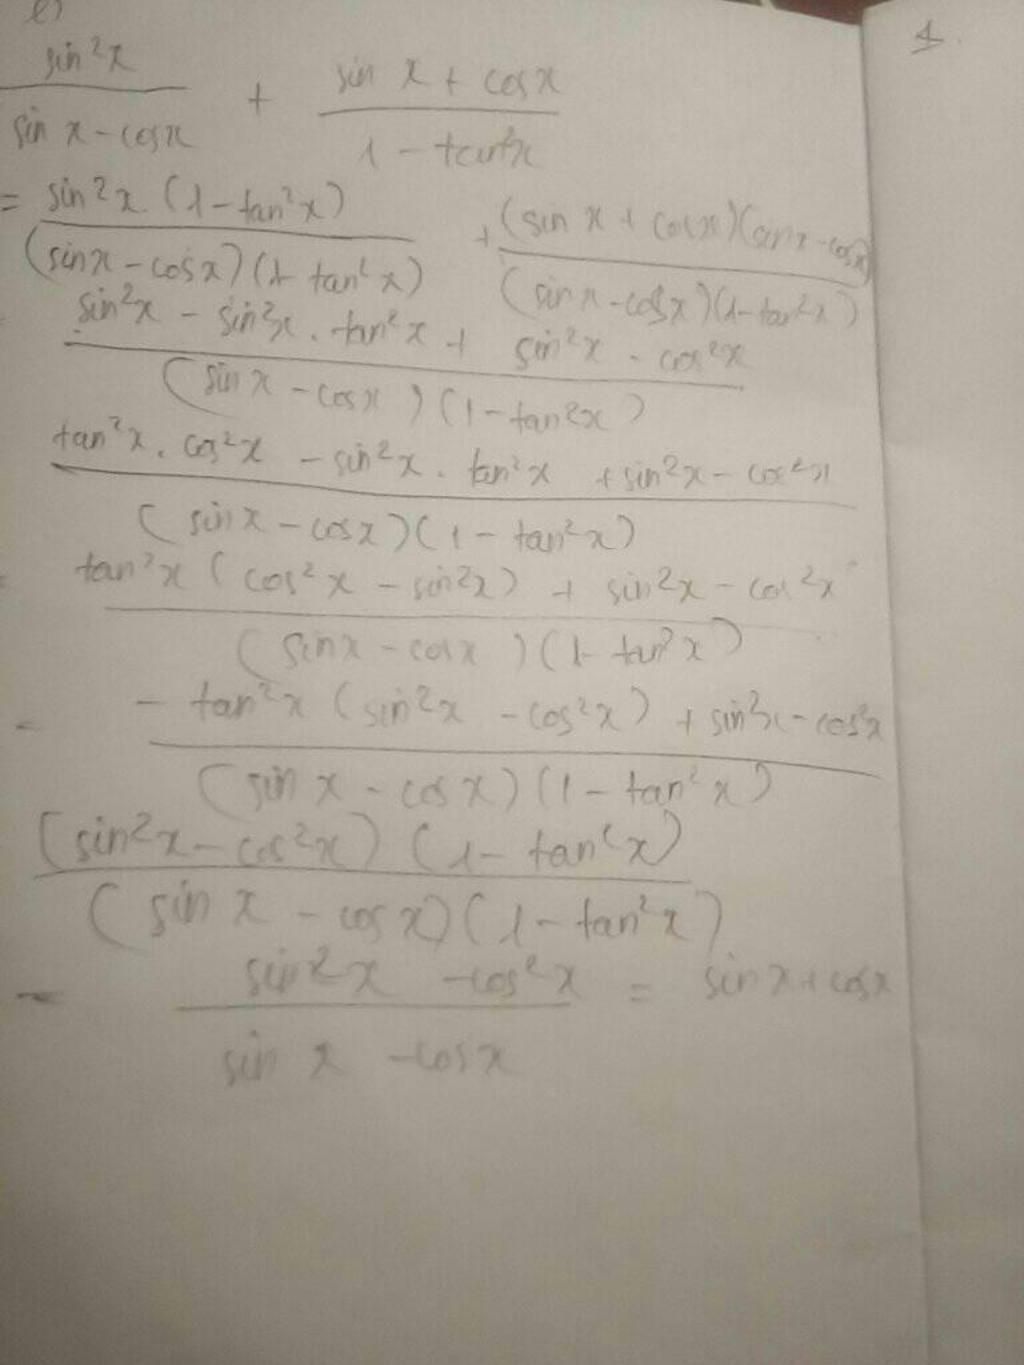 e)
sin²x / (sin x - cosx) + (sin x + cosx) / (1 - tan²x)
= sin²x (1 - tan²x) / (sinx - cosx)(1 - tan²x) + (sin x + cosx)(sinx - cosx) / (sin x - cosx)(1 - tan²x)
sin²x - sin²x . tan²x + sin²x - cos²x / (sin x - cosx)(1 - tan²x)
tan²x . cos²x - sin²x . tan²x + sin²x - cos²x / (sinx - cosx)(1 - tan²x)
= tan²x (cos²x - sin²x) + sin²x - cos²x / (sinx - cosx)(1 - tan²x)
= - tan²x (sin²x - cos²x) + sin²x - cos²x / (sin x - cosx)(1 - tan²x)
(sin²x - cos²x)(1 - tan²x) / (sin x - cosx)(1 - tan²x)
= sin²x - cos²x / sin x - cosx = sin x + cosx